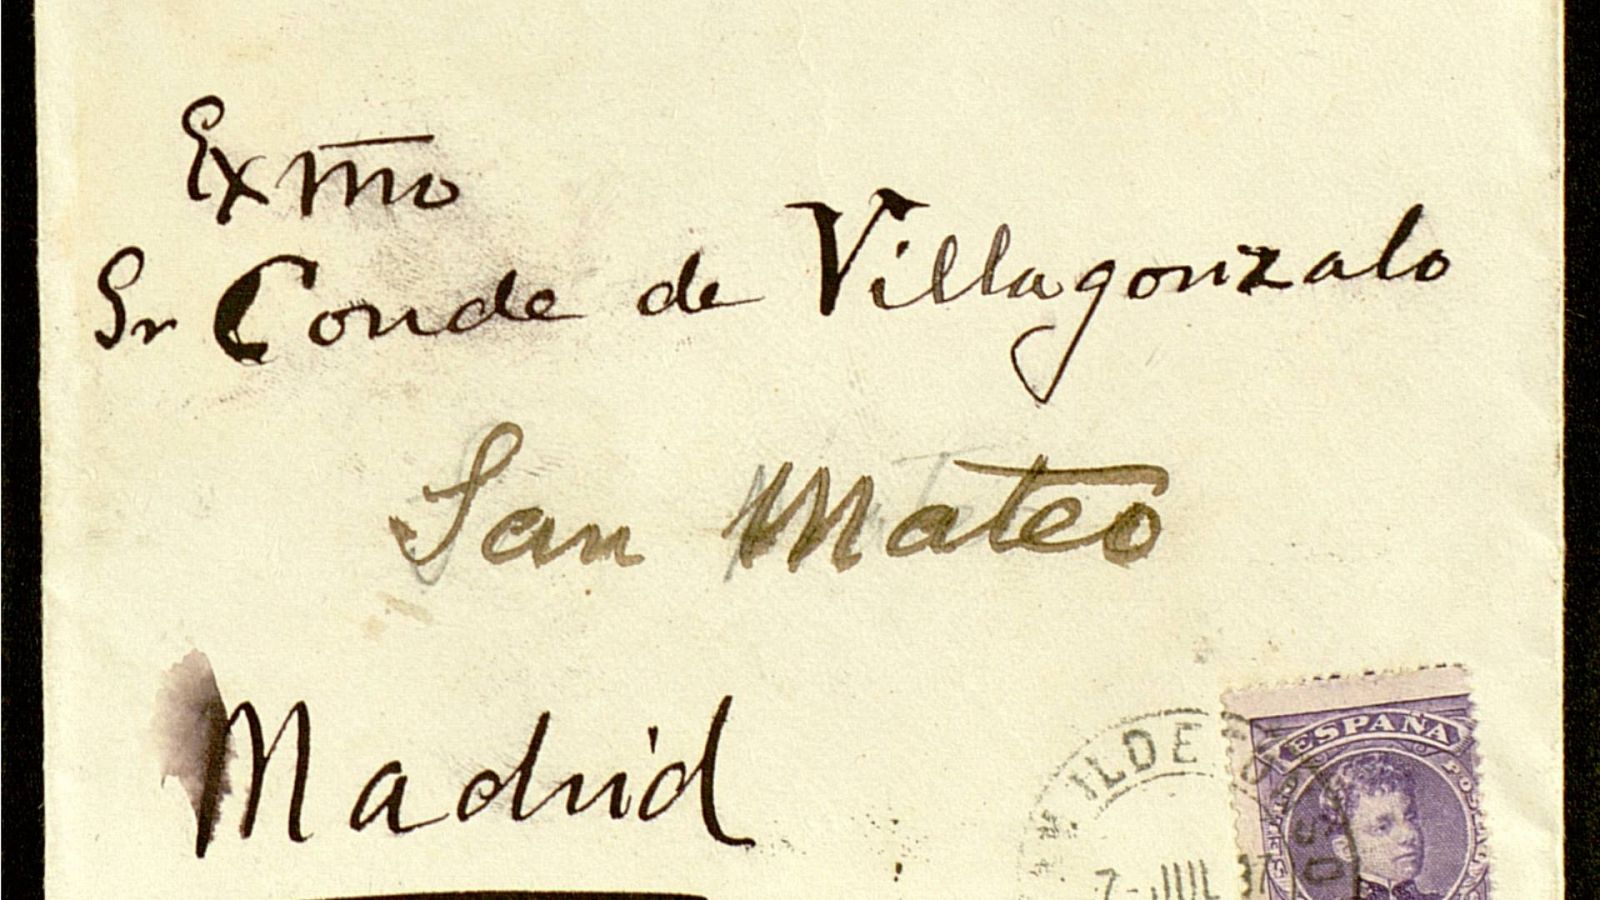 Exmo
Sr Conde de Villagonzalo
San Mateo
Madrid
ILDE
ESPAÑA
7-JUL 37